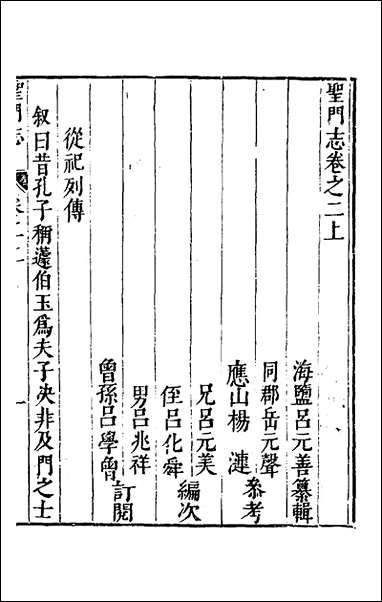 聖門志卷之二上
海鹽呂元善纂輯
同郡岳元聲
應山楊漣參考
兄呂元美
侄呂化舜編次
男呂兆祥
曾孫呂學魯訂閱
從祀列傳
叙曰昔孔子稱蘧伯玉為夫子決非及門之士
聖門志